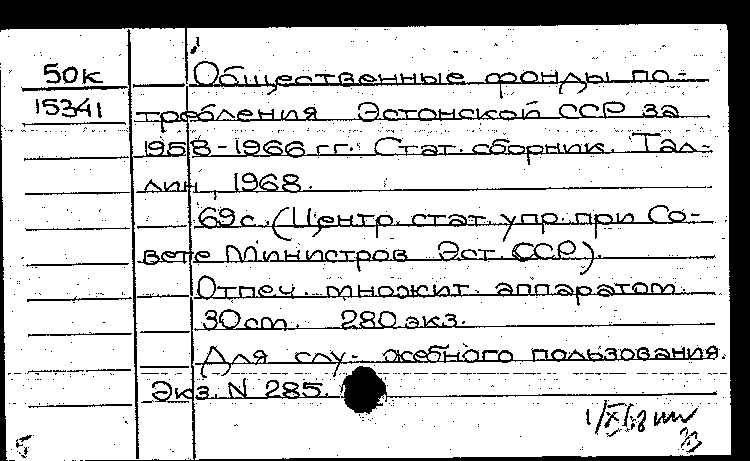 50к Общественные фонды по-
15341 требления Эстонской ССР за
1958-1966 гг. Стат. сборник. Тал-
лин, 1968.
69с. (Центр. стат. упр. при Со-
вете Министров Эст. ССР).
Отпеч. множит. аппаратом.
30cm. 280 экз.
Для слу- жебного пользования.
Экз. N 285.
1/XI 68